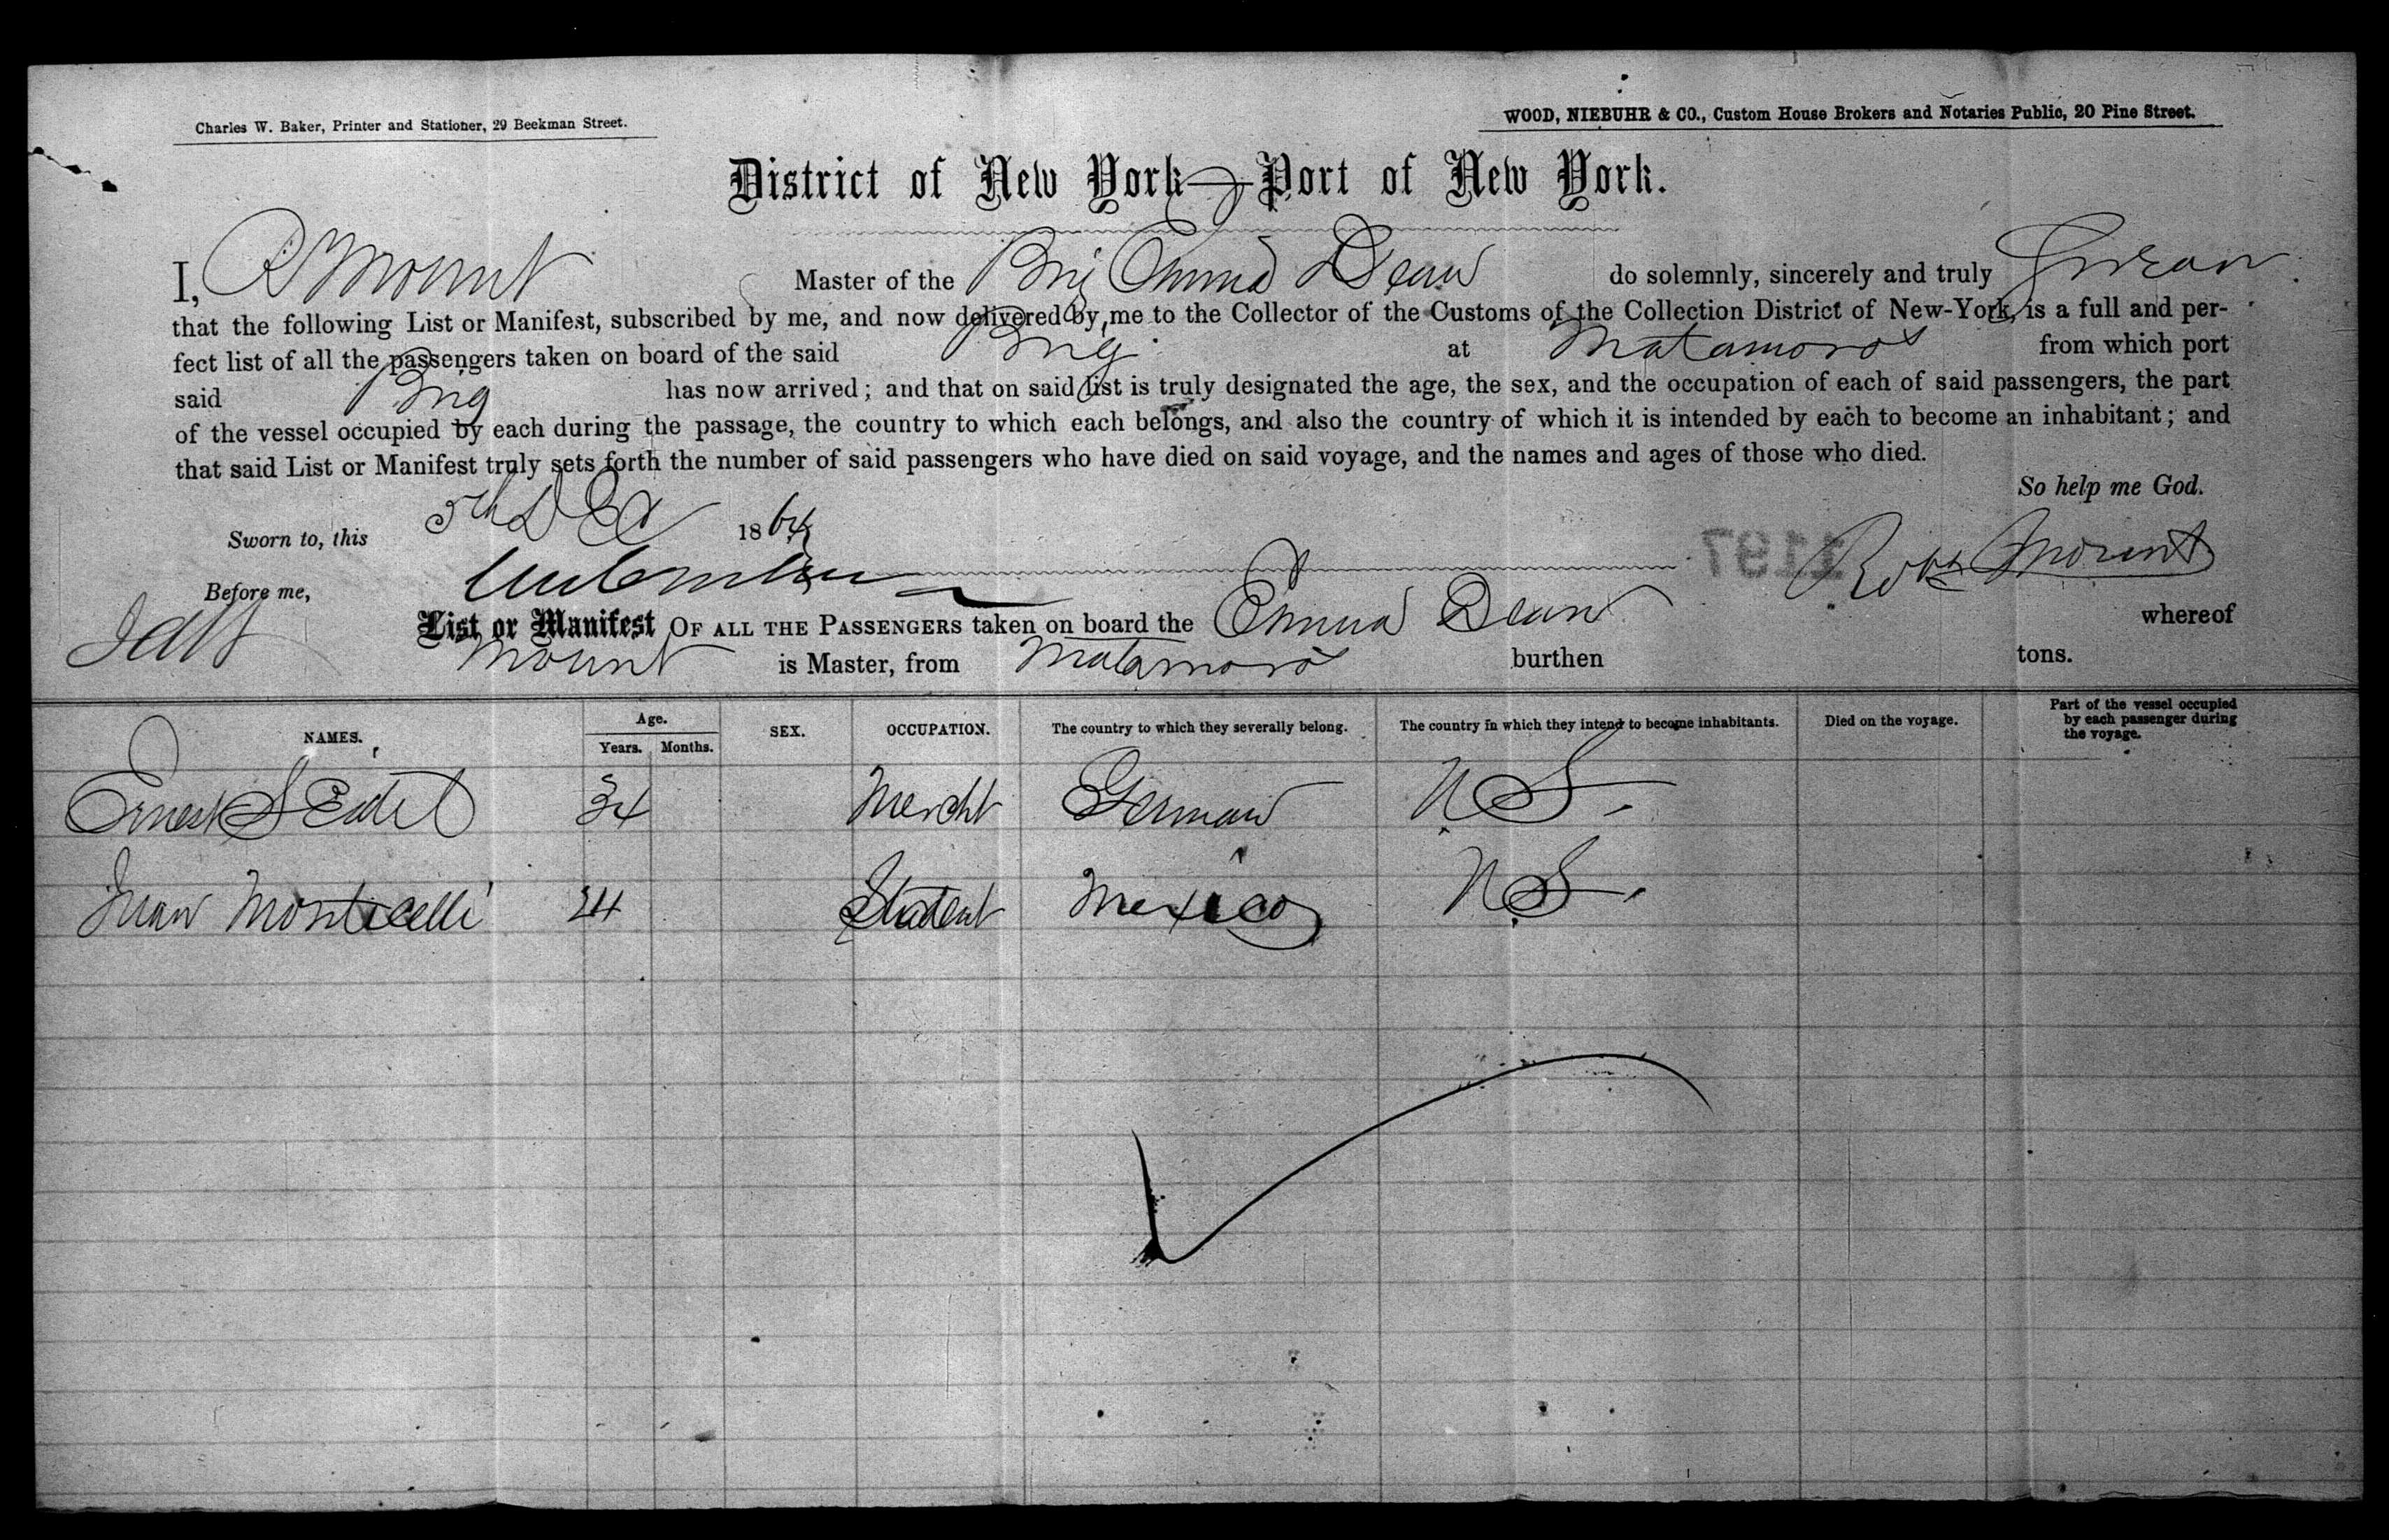 Charles W. Baker, Printer and Stationer, 29 Beekman Street.
WOOD, NIEBUHR & CO., Custom House Brokers and Notaries Public, 20 Pine Street.
District of New York—Port of New York.
I, R Mount Master of the Brig Emma Dean do solemnly, sincerely and truly Swear
that the following List or Manifest, subscribed by me, and now delivered by me to the Collector of the Customs of the Collection District of New-York, is a full and per-
fect list of all the passengers taken on board of the said Brig at Matamoros from which port
said Brig has now arrived; and that on said list is truly designated the age, the sex, and the occupation of each of said passengers, the part
of the vessel occupied by each during the passage, the country to which each belongs, and also the country of which it is intended by each to become an inhabitant; and
that said List or Manifest truly sets forth the number of said passengers who have died on said voyage, and the names and ages of those who died.
So help me God.
Sworn to, this 5th Dec 1864
1197
Robt Mount
Before me,
List or Manifest OF ALL THE PASSENGERS taken on board the Emma Dean whereof
Mount is Master, from Matamoros burthen tons.
NAMES. Age. Years. Months. SEX. OCCUPATION. The country to which they severally belong. The country in which they intend to become inhabitants. Died on the voyage. Part of the vessel occupied by each passenger during the voyage.
Ernest Seidel 34 Mercht German US.
Juan Monticelli 24 Student Mexico US.